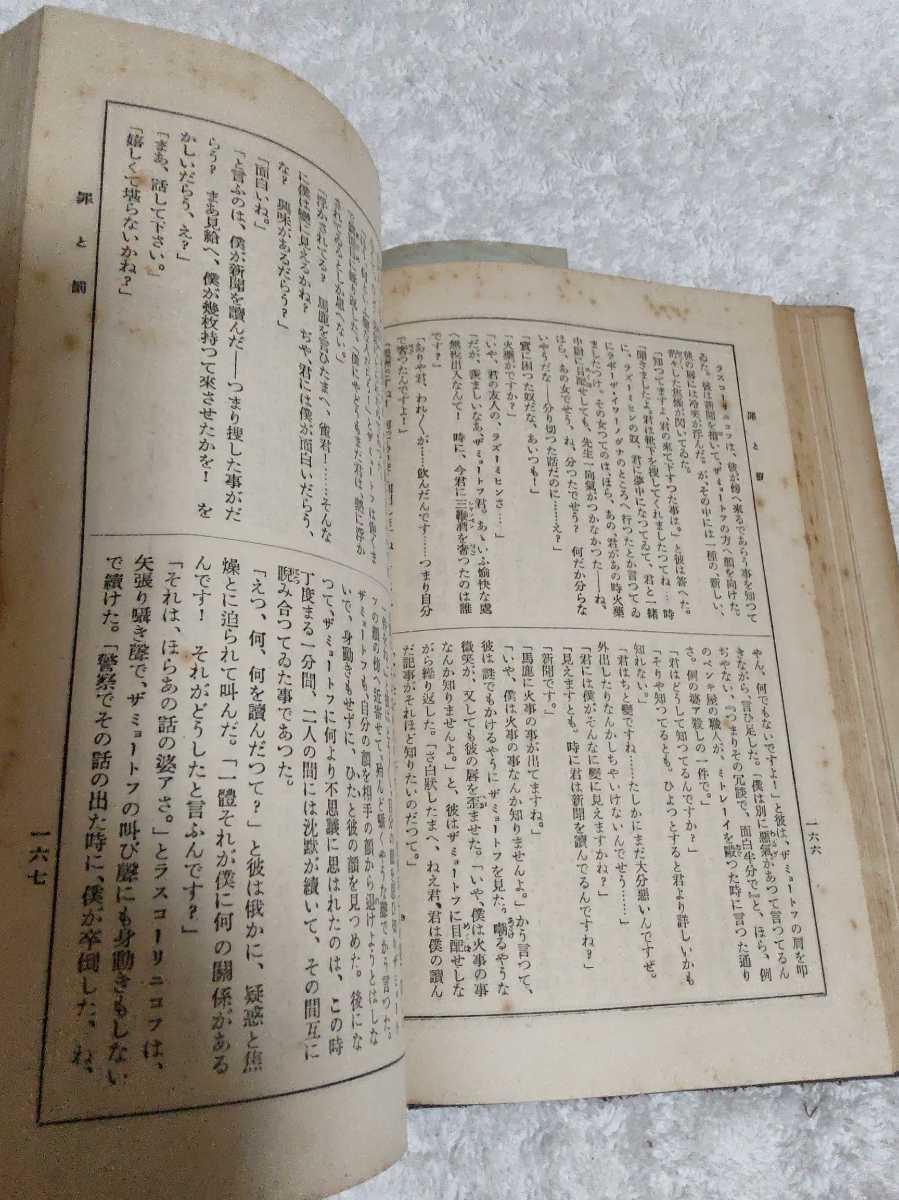 罪と罰
ラスコーリニコフは、彼が傍へ來るであらう事を知つて
ゐた。彼は新聞を措いて、ザミョートフの方へ顏を向けた。
彼の唇には冷笑が浮んだ。が、その中には一種の、新しい、
した焦燥が閃いてゐた。
「知つてますよ、君の來て下すつた事は。」と彼は答へた。
「聞きましたよ。君は靴下を搜してくれましたつてね…時
に、ラズーミヒンの奴、君に夢中になつてゐて、君と一緒
にラボーザ・イワーノヴナのところへ行つたとか言つてゐ
ましたつけ、その女つてのは、ほら、あの君があの時火藥
中尉に目配せしても、先生一向氣がつかなかつた――ね、
ほら、あの女でせう、ね、分つたでせう？　何だか分らな
いやうだな――分り切つた話だのに……え？」
「實に困つた奴だな、あいつも！」
「火藥がですか？」
「いや、君の友人の、ラズーミヒンさ……」
「だが、羨ましいなあ、ザミョートフ君。あゝいふ愉快な處
へ無税出入なんて！　時に、今君に三鞭酒を奢つたのは誰
です？」
「ありや君、われ〳〵が…飮んだんです……つまり自分
で奢つたんですよ！」
やん、何でもないですよ！」と彼は、ザミョートフの肩を叩
きながら、言ひ足した。「僕は別に惡氣があつて言つてるん
ぢやない、『つまりその冗談で、面白半分で』と、ほら、例
のペンキ屋の職人が、ミトレーイを毆つた時に言つた通り
さ。例の婆ア殺しの一件で。」
「君はどうして知つてるんですか？」
「そりや知つてるとも。ひよつとすると君より詳しいかも
知れない。」
「君はちと變ですね……たしかにまだ大分惡いんですぜ。
外出したりなんかしちやいけないんでせう……」
「君には僕がそんなに變に見えますかね？」
「見えますとも。時に君は新聞を讀んでるんですね？」
「新聞です。」
「馬鹿に火事の事が出てますね。」
「いや、僕は火事の事なんか知りませんよ。」かう言つて、
彼は謎でもかけるやうにザミョートフを見た。嘲るやうな
微笑が、又しても彼の唇を歪ませた。「いや、僕は火事の事
なんか知りませんよ。」と、彼はザミョートフに目配せしな
がら繰り返した。「さ白狀したまへ、ねえ君、君は僕の讀ん
だ記事がそれほど知りたいのだつて。」
一六六
罪と罰
されてゐるとしか思へない。」
「浮かされてる？　馬鹿を言ひたまへ、雀君！……そんな
に僕は變に見えるかね？　ぢや、君には僕が面白いだらう、
な？　興味があるだらう？」
「面白いね。」
「と言ふのは、僕が新聞を讀んだ――つまり搜した事がだ
らう？　まあ見給へ、僕が幾枚持つて來させたかを！　を
かしいだらう、え？」
「まあ、話して下さい。」
「嬉しくて堪らないかね？」
の顏の傍へ近寄せて、殆んど囁くやうな聲でから言つた。
ザミョートフも、自分の顏を相手の顏から避けようとはしな
いで、身動きもせずに、ひたと彼の顏を見つめた。後にな
つて、ザミョートフに何より不思議に思はれたのは、この時
丁度まる一分間、二人の間には沈默が續いて、その間互に
睨み合つてゐた事であつた。
「えつ、何、何を讀んだつて？」と彼は俄かに、疑惑と焦
燥とに迫られて叫んだ。「一體それが僕に何の關係がある
んです！　それがどうしたと言ふんです？」
「それは、ほらあの話の婆アさ。」とラスコーリニコフは、
矢張り囁き聲で、ザミョートフの叫び聲にも身動きもしない
で續けた。「警察でその話の出た時に、僕が卒倒した、ね、
一六七